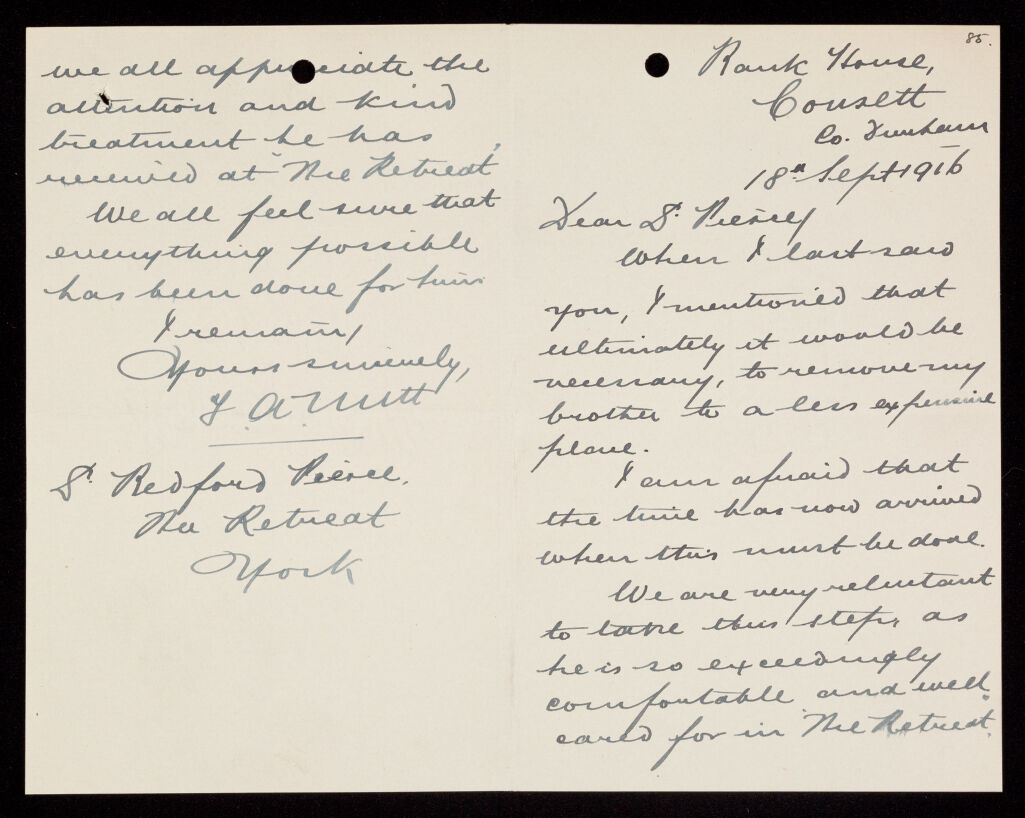 85.
Bank House,
Consett
Co. Durham
18th Sept 1916
Dear Dr. Pierce,
When I last saw
you, I mentioned that
ultimately it would be
necessary, to remove my
brother to a less expensive
place.
I am afraid that
the time has now arrived
when this must be done.
We are very reluctant
to take this step, as
he is so exceedingly
comfortable and well
cared for in "The Retreat."
we all appreciate the
attention and kind
treatment he has
received at "The Retreat"
We all feel sure that
everything possible
has been done for him.
I remain,
Yours sincerely,
A.
Dr. Bedford Pierce.
The Retreat
York